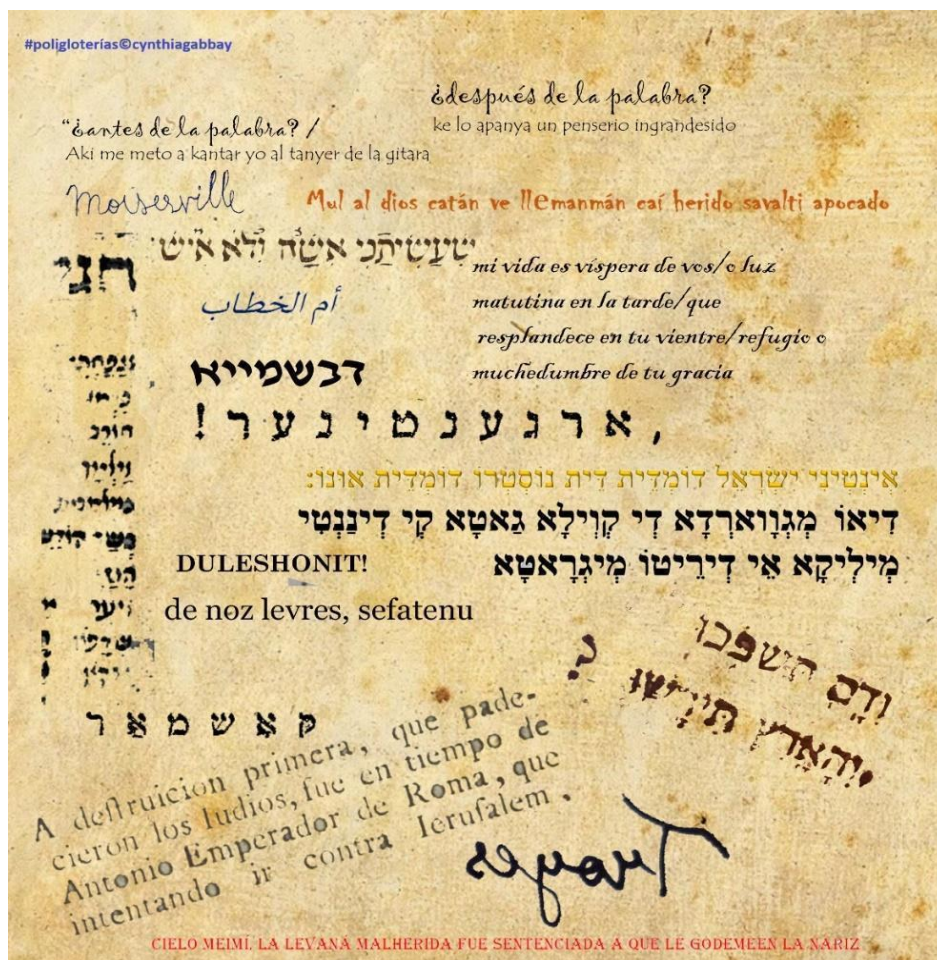 #poligloterías©cynthiagabbay
¿después de la palabra?
ke lo apanya un penserio ingrandesido
“¿antes de la palabra? /
Aki me meto a kantar yo al tanyer de la gitara
Moiserville
Mul al dios catán ve llemanmán caí herido savalti apocado
שֶעָשִׂיתַנִי אִשָה וְלֹא אִישׁ
mi vida es víspera de vos/o luz
matutina en la tarde/que
resplandece en tu vientre/refugio o
muchedumbre de tu gracia
أم الخطاب
דבשמייא
, א ר ג ע נ ט י נ ע ר !
אִינְטֵינִי יִשְׂרָאֵל דוֹמְדֵית דֵית נוֹסְטְרוֹ דוֹמְדֵית אוּנוֹ:
דִיאוֹ מְגְווֹארְדָא דִי קְוִילָא גַאטָא קִי דִינַנְטִי
מִילִיקָא אֵי דִירֵיטוֹ מִיגְרָאטָא
DULESHONIT!
de noz levres, sefatenu
וְדָם תִּשְׁפֹּכוּ
וְהָאָרֶץ תִּירָשׁוּ
?
ק אַ ש מ אַ ר
A deſtruicion primera, que pade-
cieron los Iudios, fue en tiempo de
Antonio Emperador de Roma, que
intentando ir contra Ieruſalem,
CIELO MEIMÍ, LA LEVANA MALHERIDA FUE SENTENCIADA A QUE LE GODEMEEN LA NARIZ